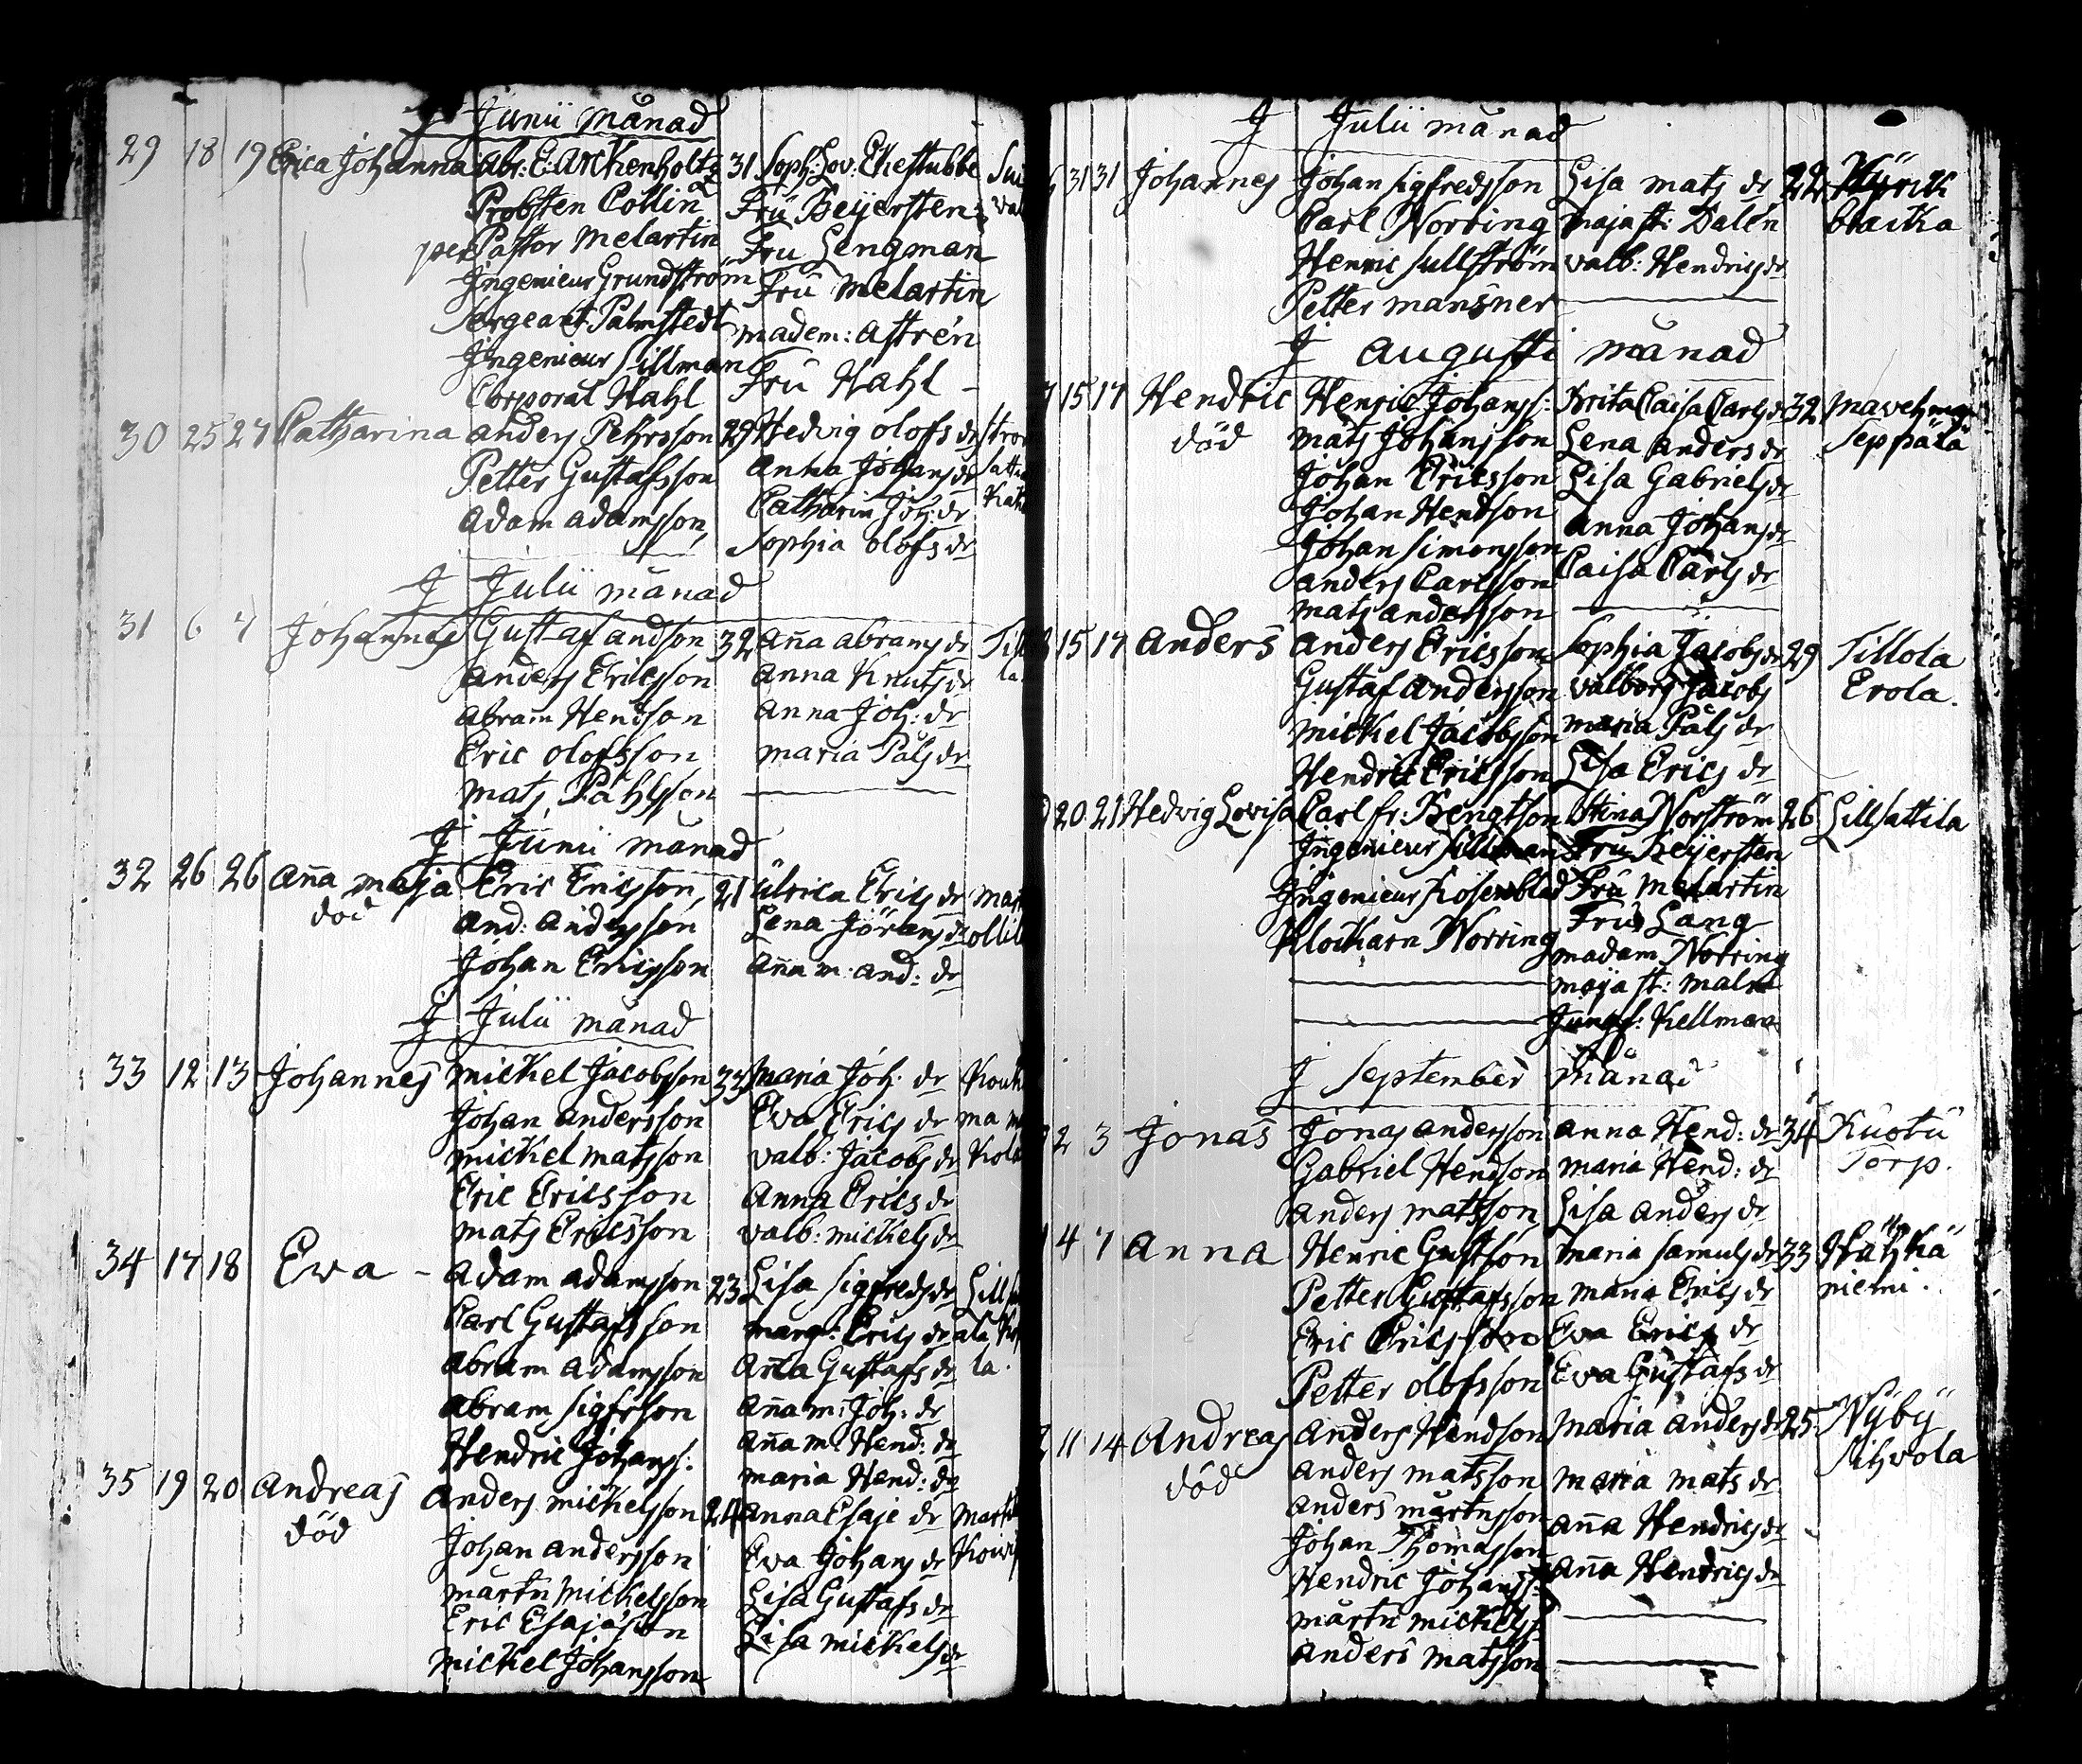 J Junii månad
29 18 19 Erica Johanna Abr: E: Arckenholtz 31 Soph: Lov: Ekestubbe
Probsten Collin Fru Beijersten
per Pastor Melartin Fru Lengman
Ingenieur Grundström Fru Melartin
Sergeant Palmstedt Madem: Astrén
Ingenieur Sillman Fru Hahl
Corporal Hahl
30 25 27 Catharina Anders Pehrsson 29 Hedvig Olofs dr
Petter Gustafsson Anna Johans dr
Adam Adamsson, Catharin Joh: dr
Sophia Olofs dr
J Julii månad
31 6 7 Johannes Gustaf Andson 32 Aña Abrams dr
Anders Ericsson Anna Knuts dr
Abram Hendson Anna Joh: dr
Eric Olofsson Maria Påls dr
Mats Påhlsson
J Junii månad
32 26 26 Aña Maja Eric Ericsson, 21 Ulrica Erics dr
död And: Andersson Lena Jörans dr
Johan Ericsson Aña M: And: dr
J Julii månad
33 12 13 Johannes Mickel Jacobsson 33 Maria Joh: dr
Johan Andersson Eva Erics dr
Mickel Matsson Valb: Jacobs dr
Eric Ericsson Anna Erics dr
Mats Ericsson Valb: Mickels dr
34 17 18 Eva Adam Adamsson 23 Lisa Sigfreds dr
Carl Gustafsson Marg: Erics dr
Abram Adamsson Aña Gustafs dr la.
Abram Sigfrson Aña M: Joh: dr
Hendric Johanss: Aña M: Hend: dr
Maria Hend: dr
35 19 20 Andreas Anders Mickelsson 24 Anna Esaje dr
död Johan Andersson Eva Johans dr
Mårtn Mickelsson Lisa Gustafs dr
Eric Esajason Lisa Mickels dr
Mickel Johansson
J Julii månad
31 31 Johannes Johan Sigfredsson Lisa Mats dr 22
Carl Norring Maja St: Dalén backa
Henric Sullström Valb: Hendrics dr
Petter Mansner
J Augusti månad
15 17 Hendric Henric Johanss: Brita Caisa Carls dr 32
död Mats Johansson Lena Anders dr Seppälä
Johan Ericsson Lisa Gabriels dr
Johan Hendson Anna Johans dr
Johan Simonsson Caisa Carls dr
Anders Carlsson
Mats Andersson
15 17 Anders Anders Ericsson Sophia Jacobs dr 29 Tillola
Gustaf Andersson Valborg Jacobs Erola.
Mickel Jacobsson Maria Påls dr
Hendric Ericsson Lisa Erics dr
20 21 Hedvig Lovisa Carl Fr: Bengtson Stina Norström 26 Lillsattila
Ingenieur Sillman Fru Beijersten
Ingenieur Rosenblad Fru Melartin
Klockarn Norring Fru Lang
Madam Norring
Maja St: Malm
Jungf: Kellman
J September Månad
2 3 Jonas Jonas Andersson Anna Hend: dr 34 Kuotu
Gabriel Hendson Maria Hend: dr Torp.
Anders Matsson Lisa Anders dr
4 7 Anna Henric Gustson Maria Samuls dr 33 Hähkä
Petter Gustafsson Maria Erics dr niemi.
Eric Ericsson Eva Erics dr
Petter Olofsson Eva Gustafs dr
11 14 Andreas Anders Hendson Maria Anders dr 25 Nyby
död Anders Matsson Maria Mats dr Sihvola
Anders Mårtnsson Aña Hendrics dr
Johan Thomasson Aña Hendrics dr
Hendric Johanss:
Mårtn Mickelss:
Anders Matsson